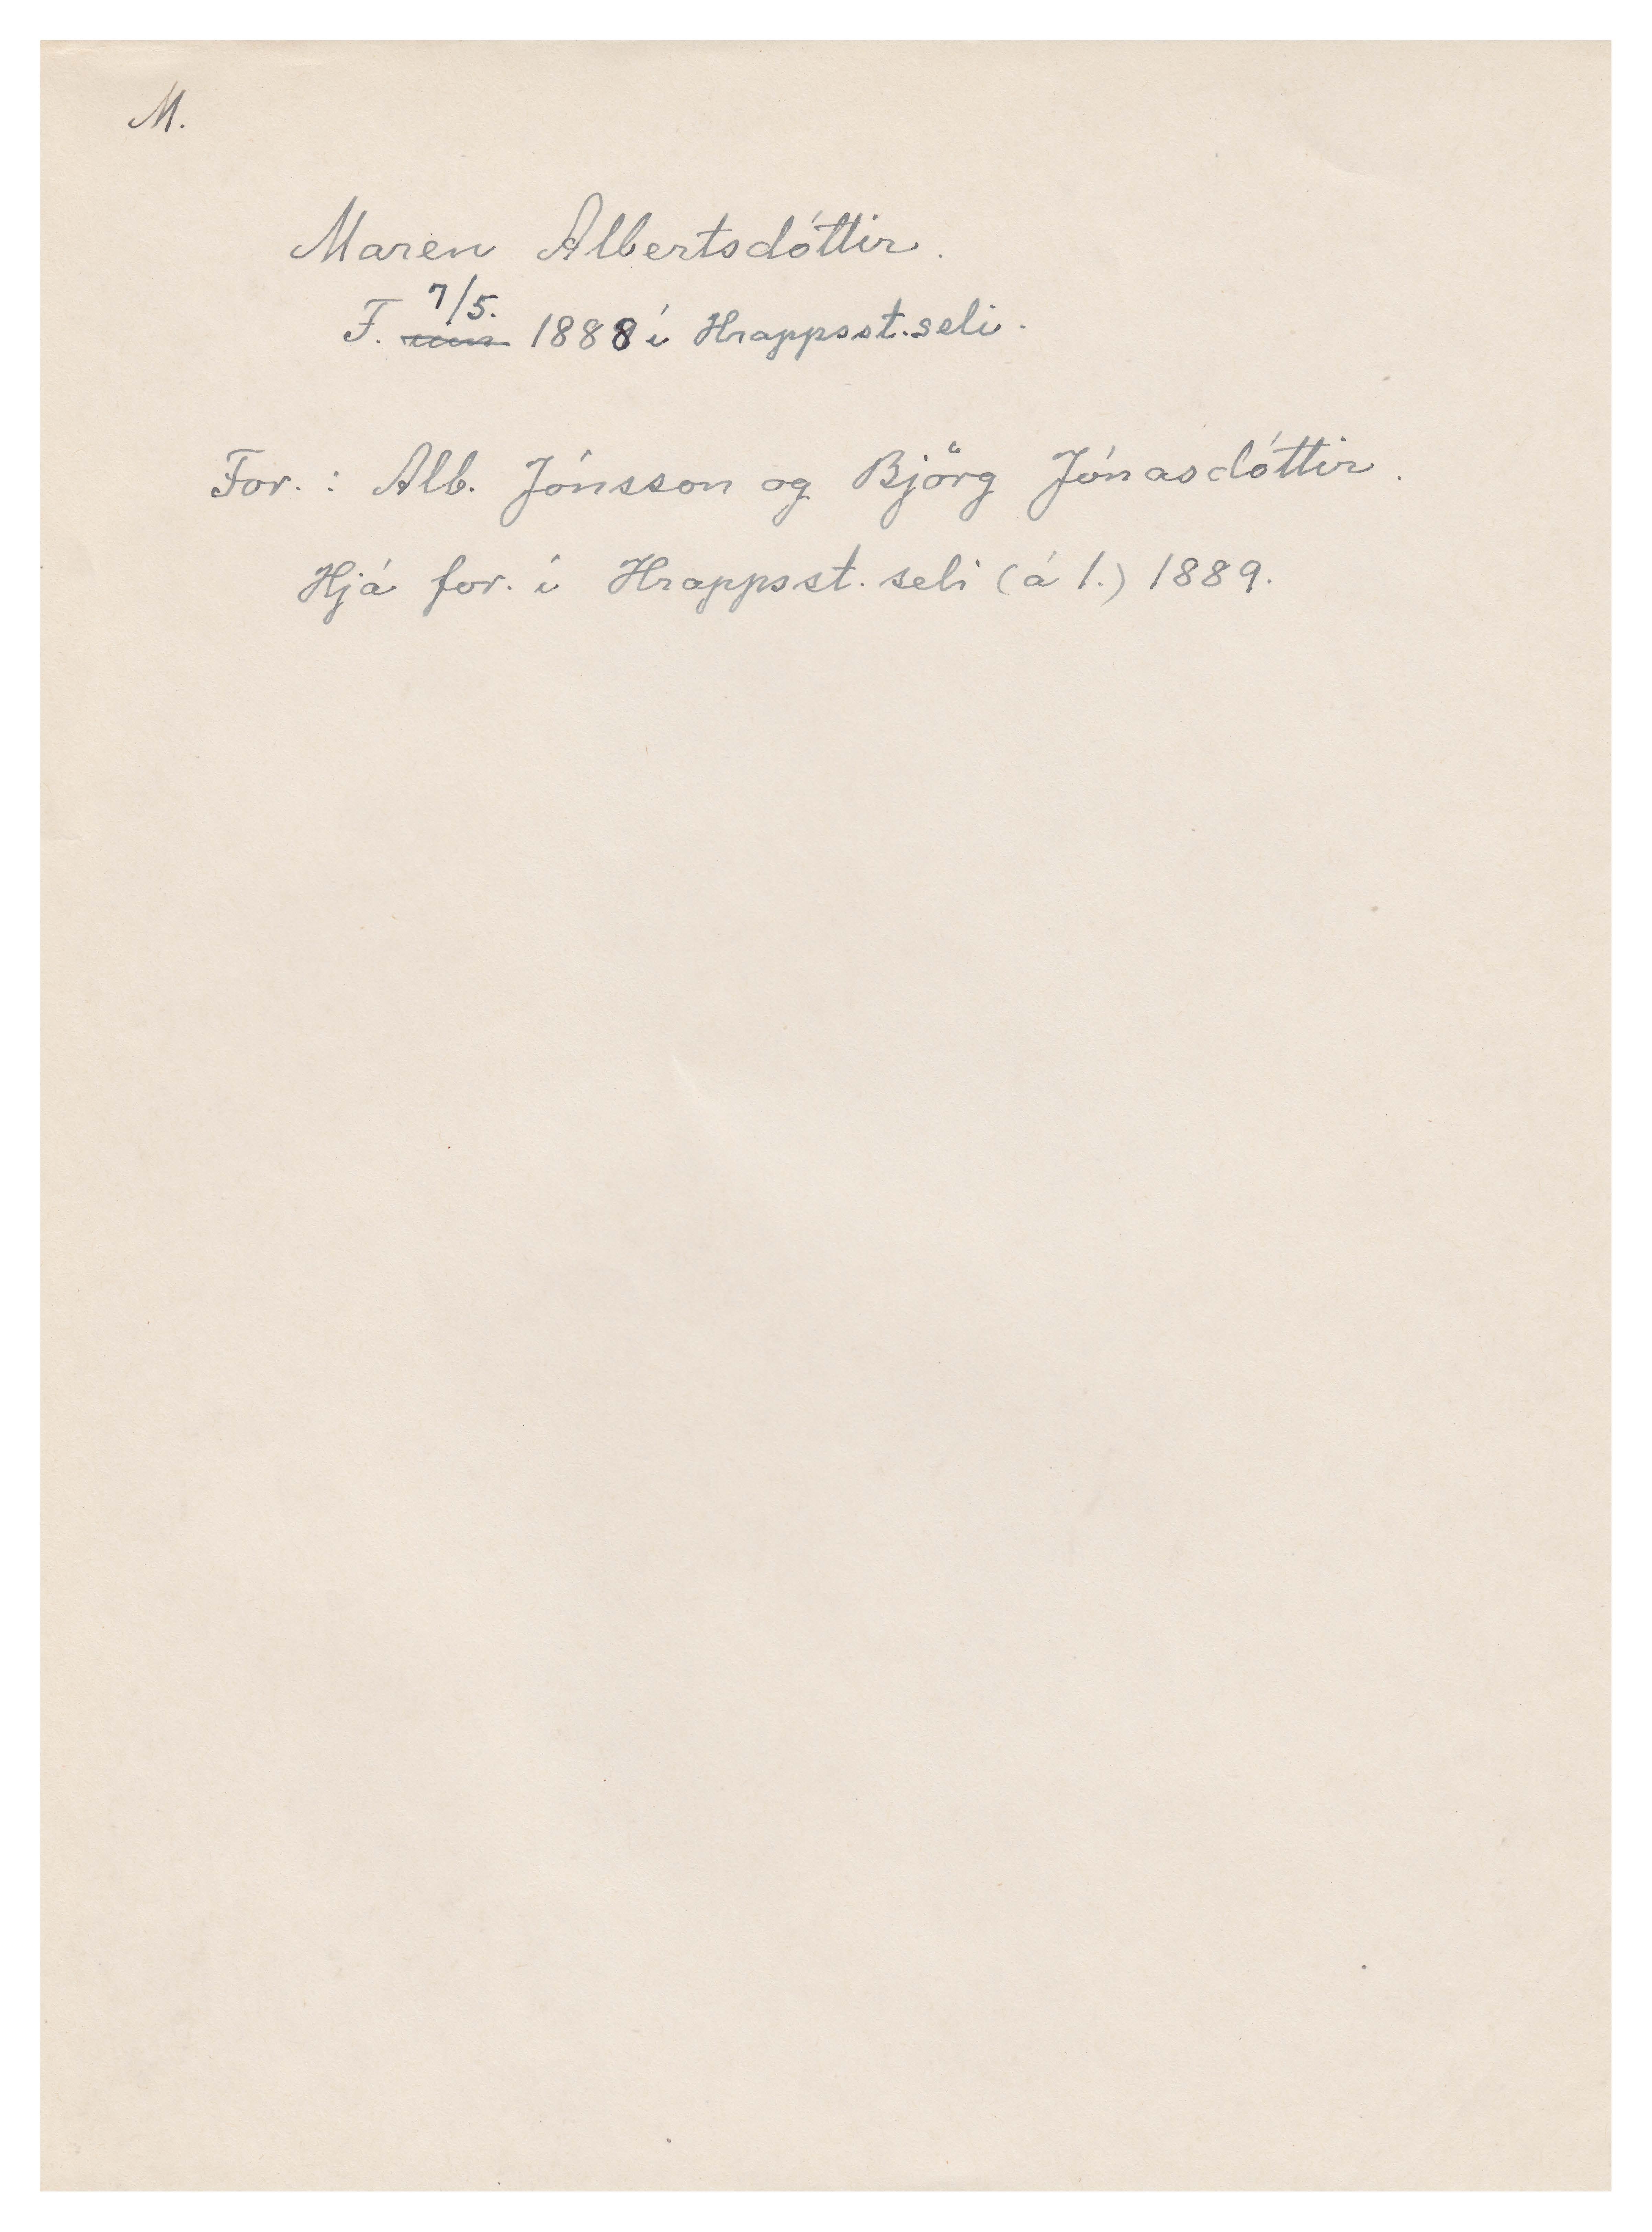 M.
Maren Albertsdóttir.
F. 7/5. 1888 í Hrappsst.seli.
For.: Alb. Jónsson og Björg Jónasdóttir.
Hjá for. í Hrappsst.seli (á 1.) 1889.